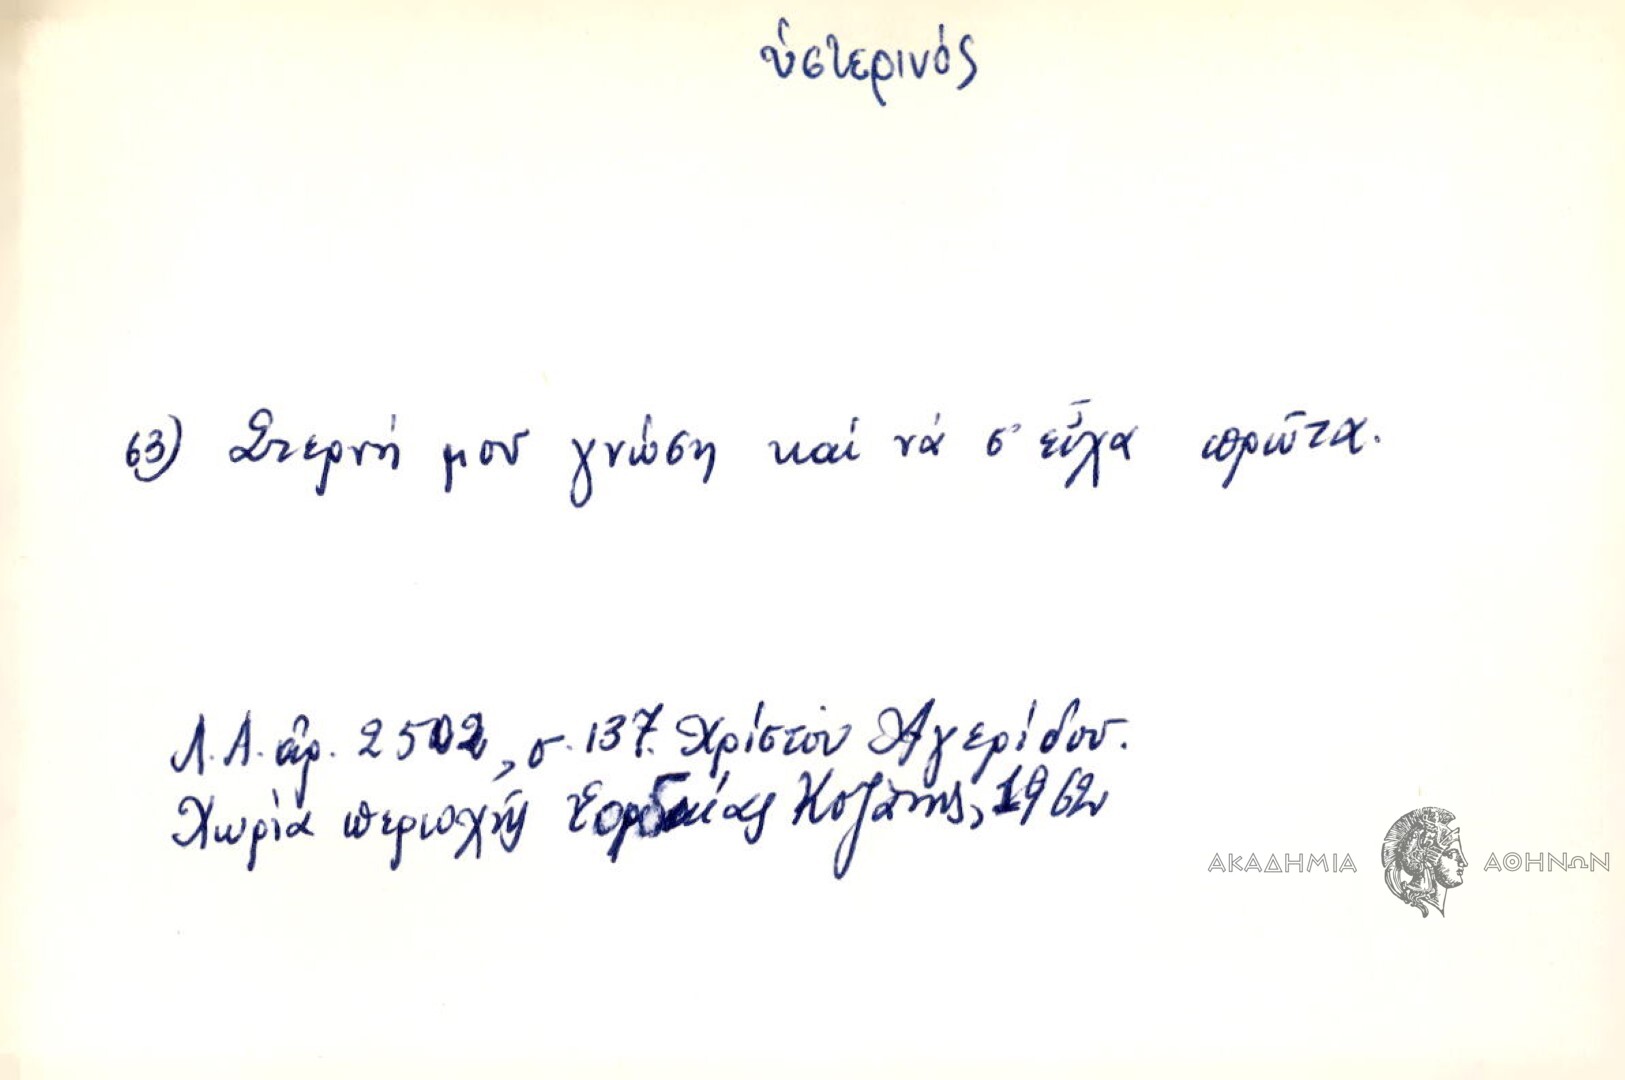 ὑστερινός
63) Στερνή μου γνώση καί νά σ' εἶχα πρῶτα.
Λ.Α. ἀρ. 2502, σ. 137. Χρίστου Ἀγερίδου.
Χωρία περιοχῆς Ἑορδαίας Κοζάνης, 1962
ΑΚΑΔΗΜΙΑ ΑΘΗΝΩΝ